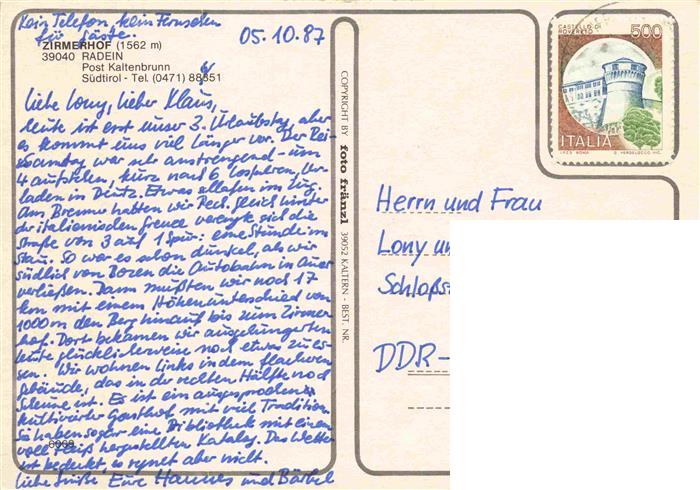 Kein Telefon, kein Fernsehen
für Gäste.
ZIRMERHOF (1562 m)
39040 RADEIN
Post Kaltenbrunn
Südtirol - Tel. (0471) 88351
05.10.87
Liebe Lony, lieber Klaus,
heute ist erst unser 3. Urlaubstag, aber
es kommt uns viel länger vor. Der Rei-
samstag war sehr anstrengend - um
4 aufstehen, kurz nach 6 losfahren, Ver-
laden in Deutz. Etwas schlafen im Zug.
Am Brenner hatten wir Pech. Gleich hinter
der italienischen Grenze verengte sich die
Straße von 3 auf 1 Spur: eine Stunde im
Stau. So war es schon dunkel, als wir
südlich von Bozen die Autobahn in Auer
verließen. Dann mußten wir noch 17
km mit einem Höhenunterschied von
1000 m den Berg hinauf bis zum Zirmer-
hof. Dort bekamen wir ausgehungerten
Leute glücklicherweise noch etwas zu es-
sen. Wir wohnen links in dem flacheren
Gebäude, das in der rechten Hälfte noch
Scheune ist. Es ist ein ausgesprochen
kultivierter Gasthof mit viel Tradition.
Sie haben sogar eine Bibliothek mit einem
voll Fleiß hergestellten Katalog. Das Wetter
ist bedeckt, es regnet aber nicht.
Liebe Grüße Eure Hannes und Bärbel
6069
COPYRIGHT BY foto fränzl 39052 KALTERN - BEST. NR.
CASTELLO DI
ROVERETO
500
ITALIA
Herrn und Frau
Lony un
Schloßs
DDR-